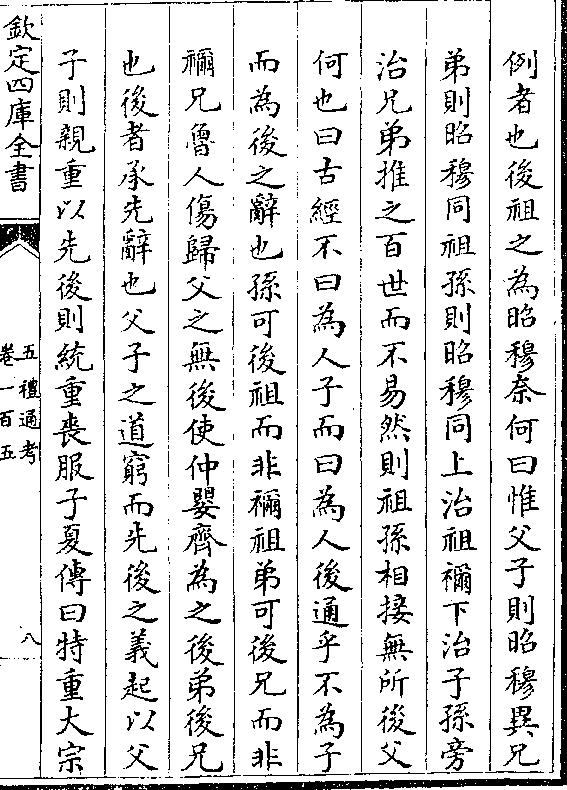 例者也後祖之為昭穆奈何曰惟父子則昭穆異兄
弟則昭穆同祖孫則昭穆同上治祖禰下治子孫旁
治兄弟推之百世而不易然則祖孫相接無所後父
何也曰古經不曰為人子而曰為人後通乎不為子
而為後之辭也孫可後祖而非禰祖弟可後兄而非
禰兄魯人傷歸父之無後使仲嬰齊為之後弟後兄
也後者承先辭也父子之道窮而先後之義起以父
子則親重以先後則統重喪服子夏傳曰特重大宗
欽定四庫全書
五禮通考
卷一百五
八